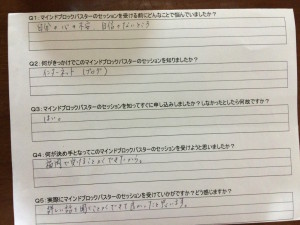 Q1:マインドブロックバスターのセッションを受ける前にどんなことで悩んでいましたか?
Q2:何がきっかけでこのマインドブロックバスターのセッションを知りましたか?
インターネット (ブログ)
Q3:マインドブロックバスターのセッションを知ってすぐに申し込みしましたか?しなかったとしたら何故ですか?
はい。
Q4:何が決め手となってこのマインドブロックバスターのセッションを受けようと思いましたか?
福岡で受けることができたから。
Q5:実際にマインドブロックバスターのセッションを受けていかがですか?どう感じますか?
詳しい話を聞くことができて良かったと思います。